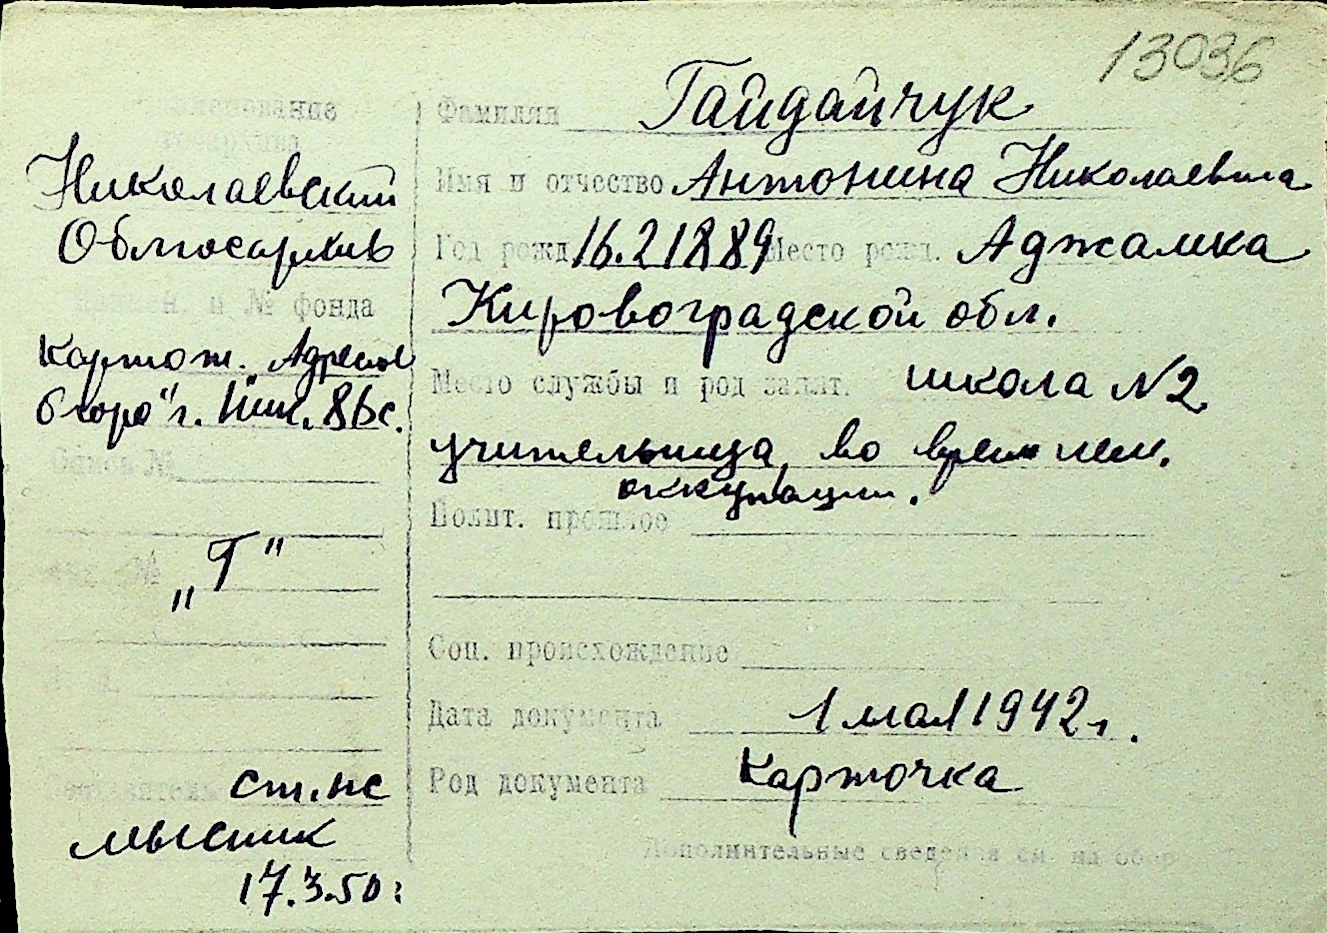 13036
Наименование
Фамилия Гайдайчук
Николаевский
Имя и отчество Антонина Николаевна
Облгосархив
Год рожд. 16.2 1889 Место рожд. Аджамка
и № фонда
Кировоградской обл.
Картот. Адресное
бюро" г. Ник. 86 с.
Место службы и род занят. школа №2
учительница во врем нем.
оккупации.
Опись №
Полит. прошлое
„Г"
№
Соц. происхождение
Дата документа 1 мая 1942 г.
Составитель ст. нс
Род документа Карточка
мысник
Дополнительные сведения см. на обор
17.3.50 г